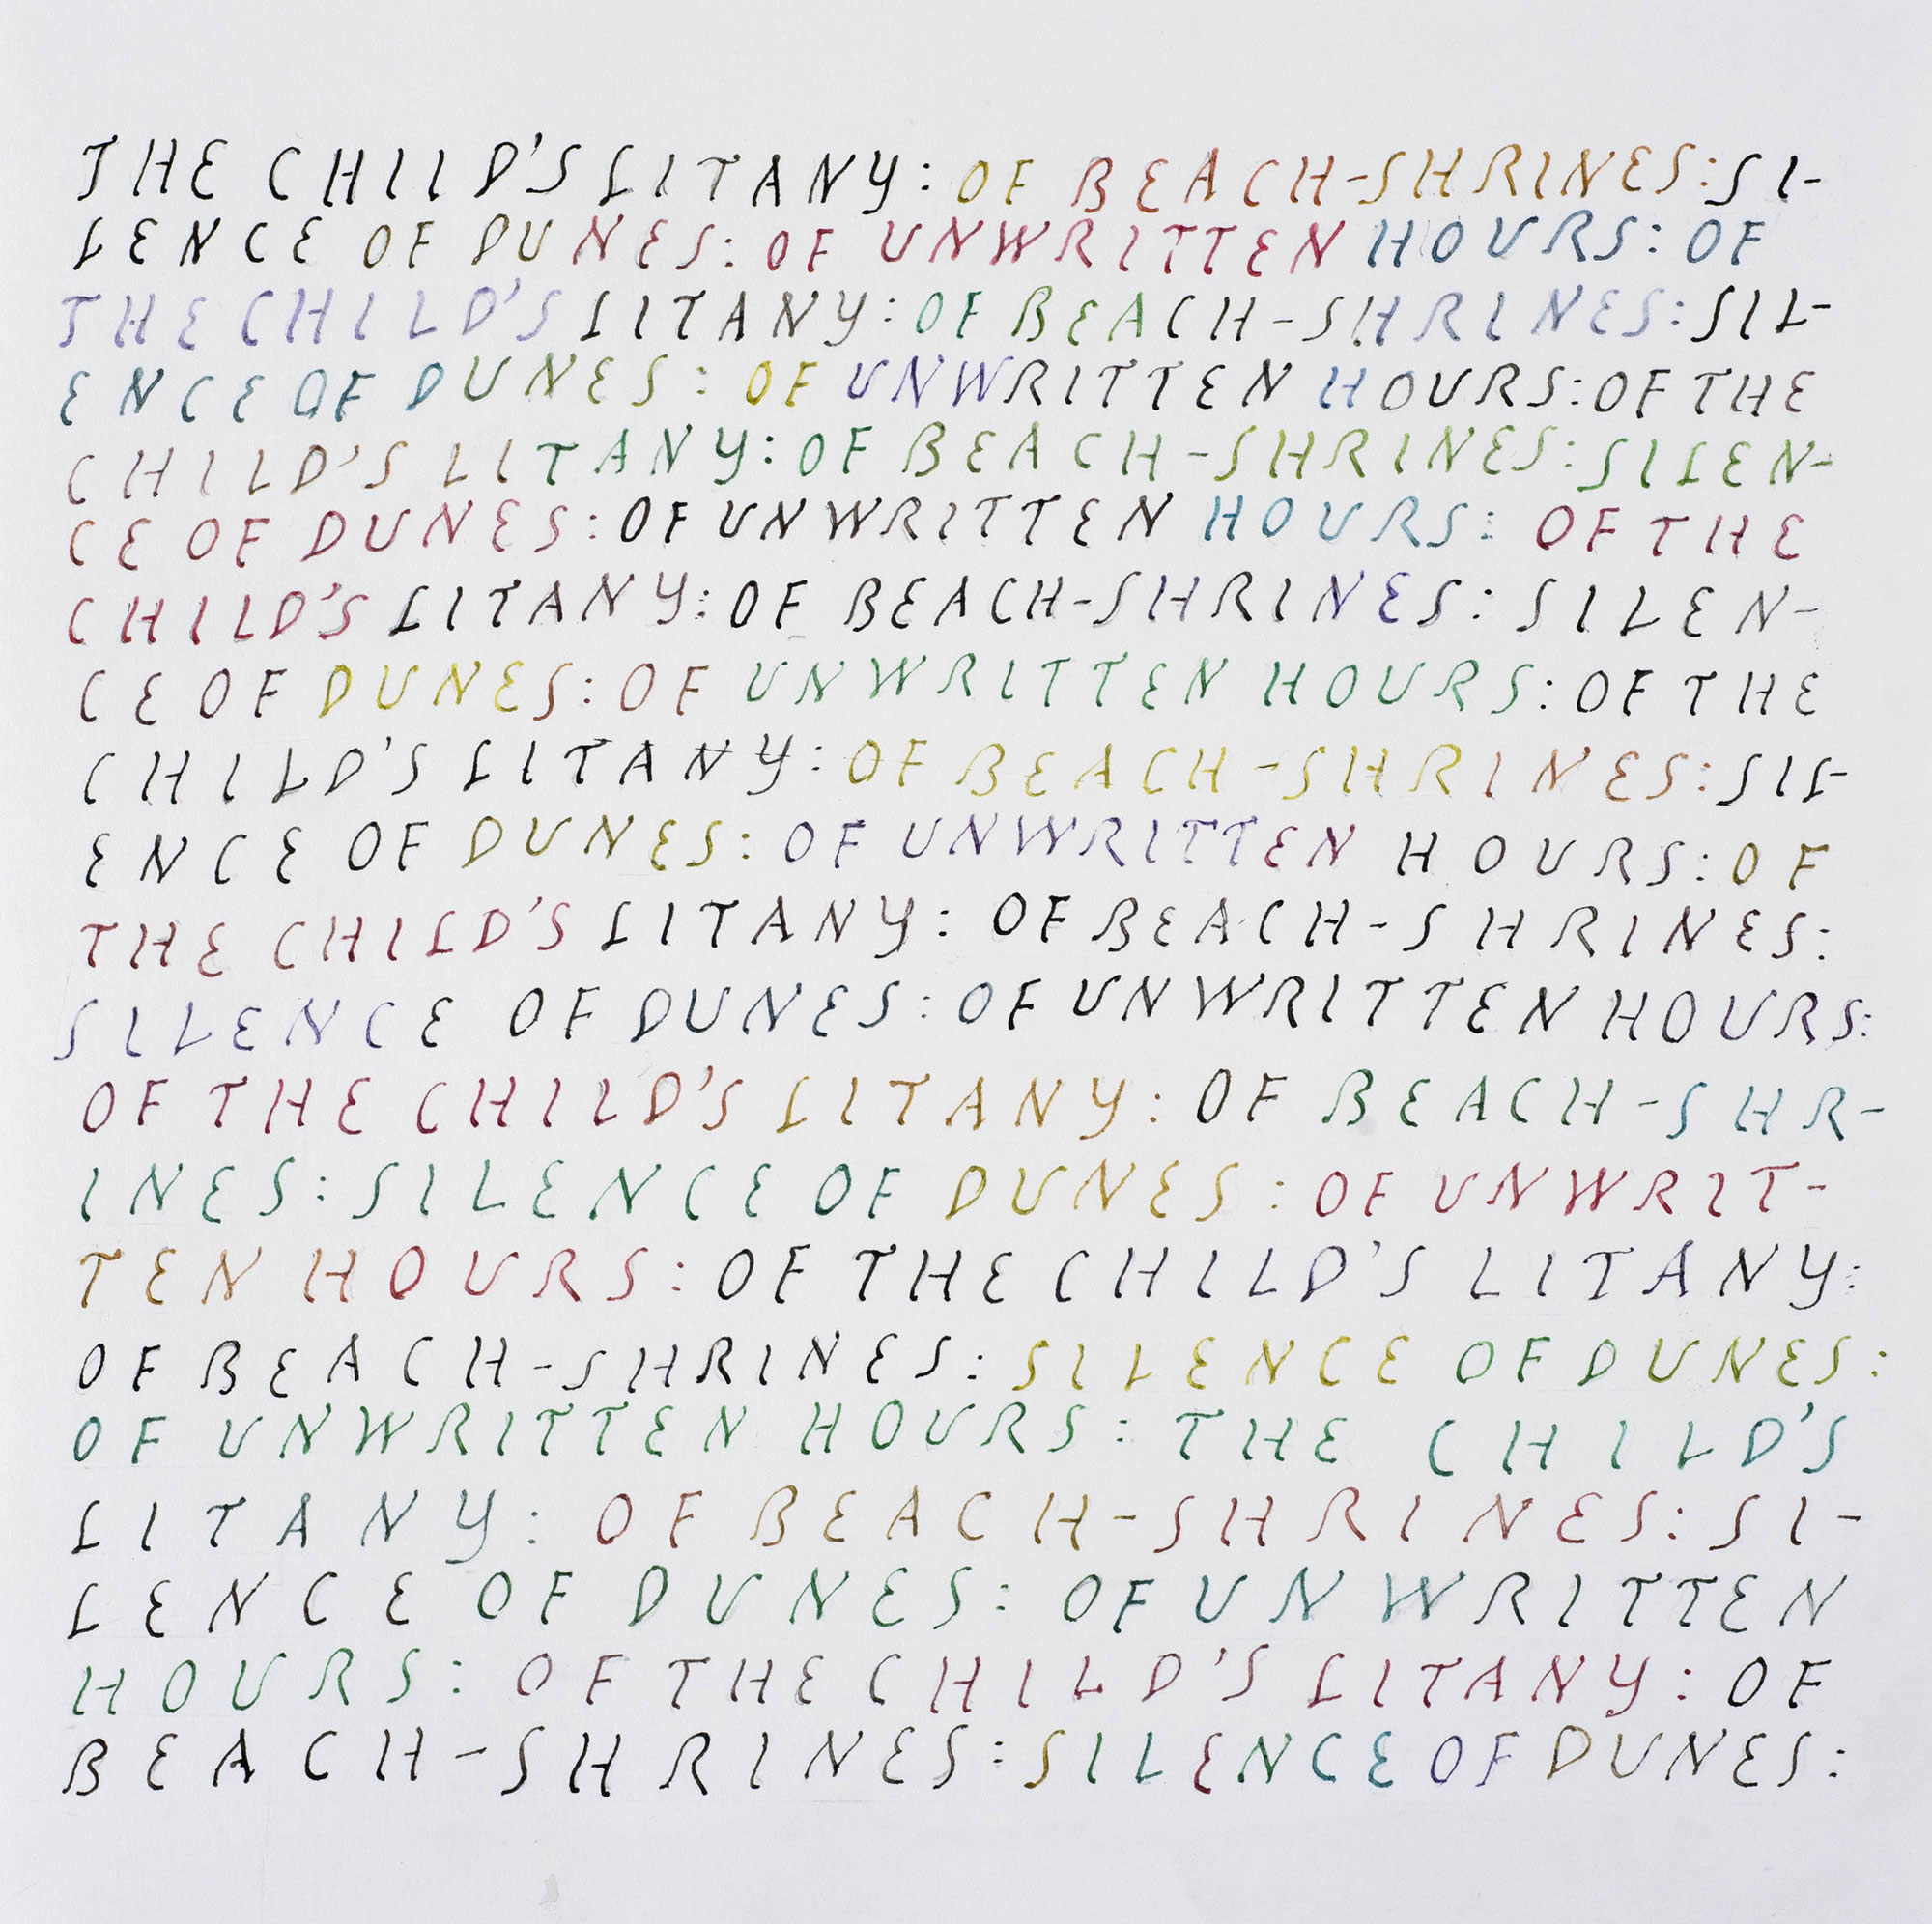 THE CHILD'S LITANY: OF BEACH-SHRINES: SI-
LENCE OF DUNES: OF UNWRITTEN HOURS: OF
THE CHILD'S LITANY: OF BEACH-SHRINES: SIL-
ENCE OF DUNES: OF UNWRITTEN HOURS: OF THE
CHILD'S LITANY: OF BEACH-SHRINES: SILEN-
CE OF DUNES: OF UNWRITTEN HOURS: OF THE
CHILD'S LITANY: OF BEACH-SHRINES: SILEN-
CE OF DUNES: OF UNWRITTEN HOURS: OF THE
CHILD'S LITANY: OF BEACH-SHRINES: SIL-
ENCE OF DUNES: OF UNWRITTEN HOURS: OF
THE CHILD'S LITANY: OF BEACH-SHRINES:
SILENCE OF DUNES: OF UNWRITTEN HOURS:
OF THE CHILD'S LITANY: OF BEACH-SHR-
INES: SILENCE OF DUNES: OF UNWRIT-
TEN HOURS: OF THE CHILD'S LITANY:
OF BEACH-SHRINES: SILENCE OF DUNES:
OF UNWRITTEN HOURS: THE CHILD'S
LITANY: OF BEACH-SHRINES: SI-
LENCE OF DUNES: OF UNWRITTEN
HOURS: OF THE CHILD'S LITANY: OF
BEACH-SHRINES: SILENCE OF DUNES: